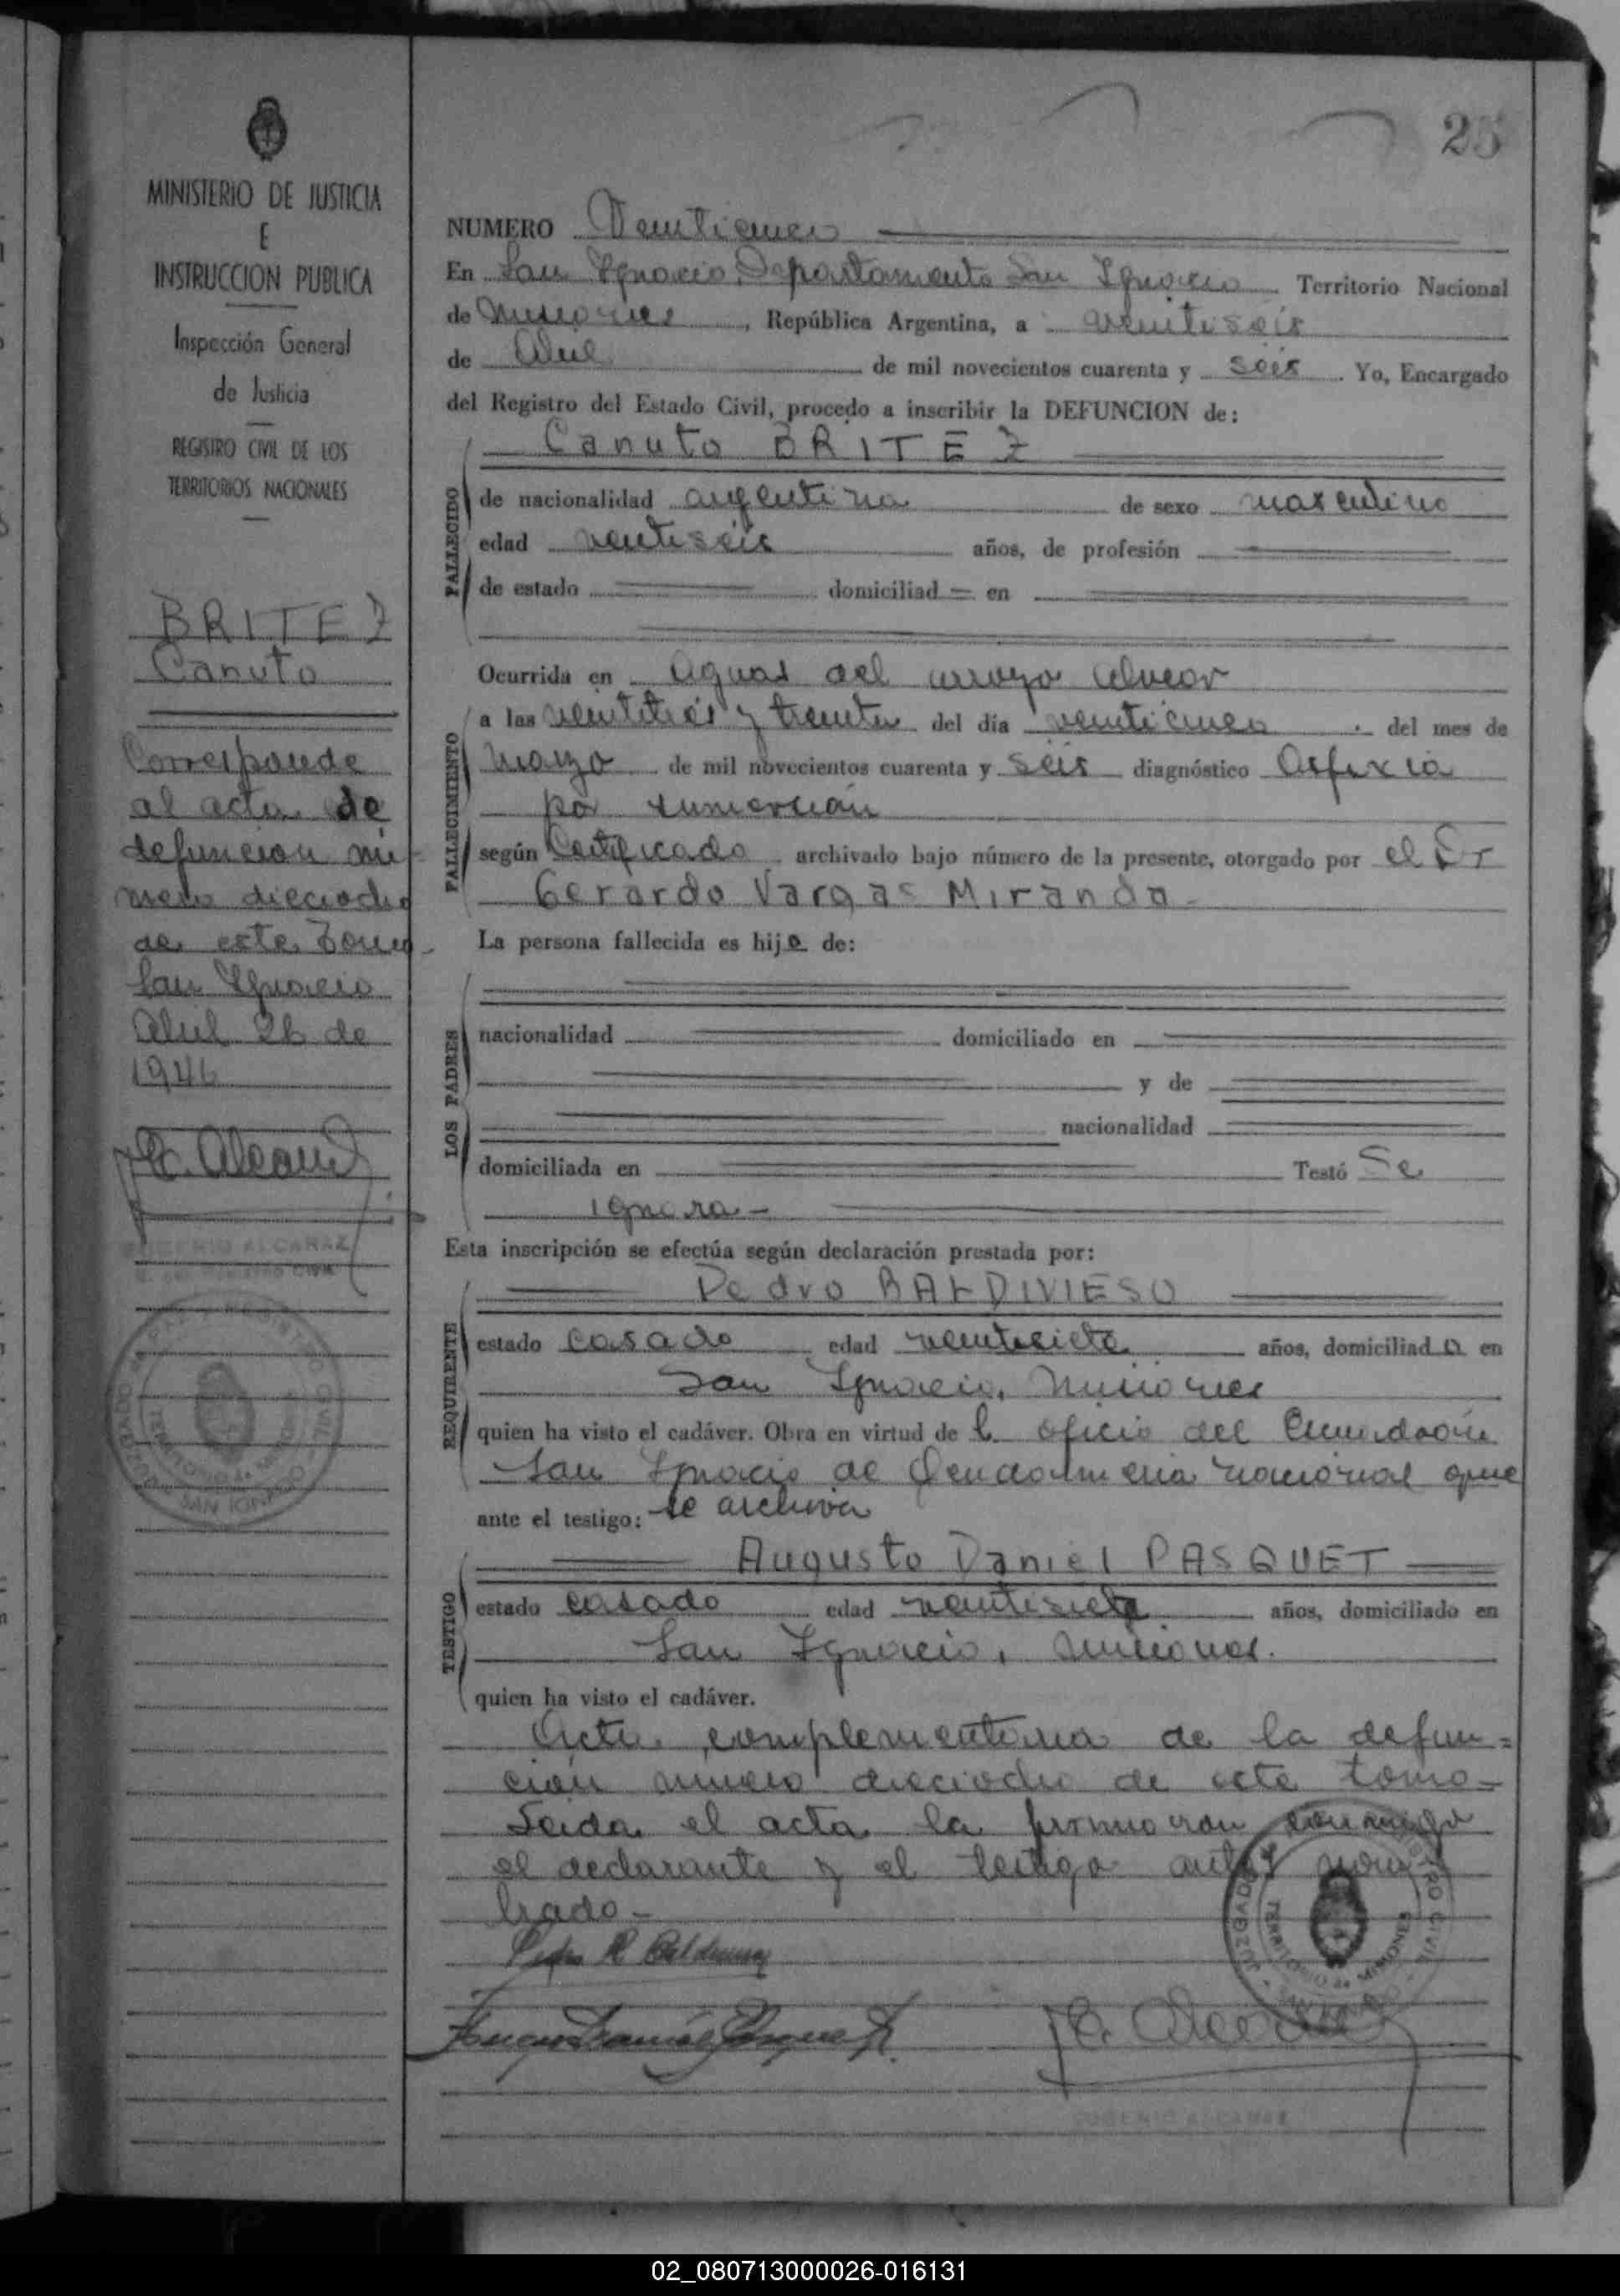 25
MINISTERIO DE JUSTICIA
E
INSTRUCCION PUBLICA
Inspección General
de Justicia
REGISTRO CIVIL DE LOS
TERRITORIOS NACIONALES
BRITEZ
Canuto
Corresponde
al acta de
defuncion nú-
mero dieciocho
de este Tomo-
San Ignacio
Abril 26 de
1946
E. Alcaraz
EUGENIO ALCARAZ
REGISTRO CIVIL
JUZGADO DE PAZ Y REGISTRO CIVIL
TERRITORIO de MISIONES
SAN IGNACIO
NUMERO Veinticinco
En San Ignacio Departamento San Ignacio Territorio Nacional
de Misiones, República Argentina, a veintiseis
de Abril de mil novecientos cuarenta y seis. Yo, Encargado
del Registro del Estado Civil, procedo a inscribir la DEFUNCION de:
Canuto BRITEZ
FALLECIDO
de nacionalidad argentina de sexo masculino
edad veintiseis años, de profesión
de estado domiciliad en
FALLECIMIENTO
Ocurrida en Aguas del arroyo Alvear
a las veintitres y treinta del día veinticinco del mes de
marzo de mil novecientos cuarenta y seis diagnóstico Asfixia
por sumersión
según Certificado archivado bajo número de la presente, otorgado por el Dr
Gerardo Vargas Miranda-
La persona fallecida es hijo de:
LOS PADRES
nacionalidad domiciliado en
y de
nacionalidad
domiciliada en Testó Se
ignora-
Esta inscripción se efectúa según declaración prestada por:
REQUIRENTE
Pedro BALDIVIESO
estado casado edad veintisiete años, domiciliado en
San Ignacio, Misiones
quien ha visto el cadáver. Obra en virtud de oficio del Escuadrón
San Ignacio de Gendarmeria nacional que
ante el testigo: se archiva
TESTIGO
Augusto Daniel PASQUET
estado casado edad veintisiete años, domiciliado en
San Ignacio, Misiones.
quien ha visto el cadáver.
Acta complementaria de la defun=
ción numero dieciocho de este tomo-
Leida el acta la firmaron conmigo
el declarante y el testigo antes nom
brado-
JUZGADO REGISTRO CIVIL
TERRITORIO de MISIONES
SAN IGNACIO
E. Alcaraz
EUGENIO ALCARAZ
02_080713000026-016131